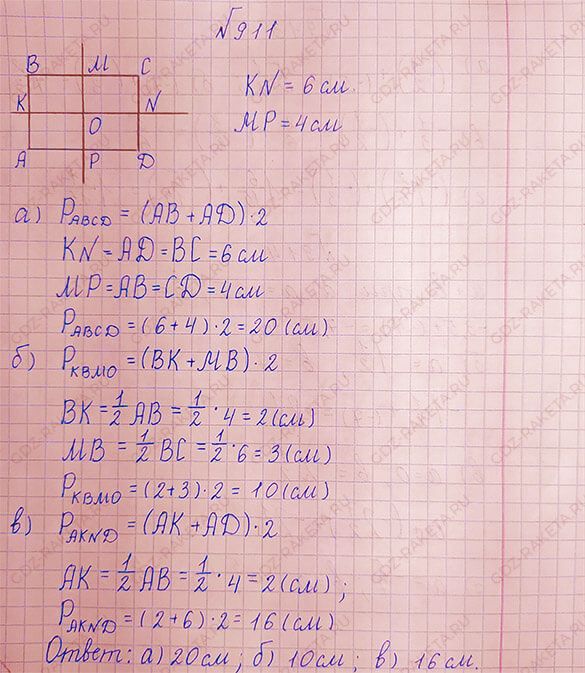 № 911
B M C
K N
O
A P D
KN = 6 см
MP = 4 см
а) P_ABCD = (AB + AD) · 2
KN = AD = BC = 6 см
MP = AB = CD = 4 см
P_ABCD = (6 + 4) · 2 = 20 (см)
б) P_KBMO = (BK + MB) · 2
BK = 1/2 AB = 1/2 · 4 = 2 (см)
MB = 1/2 BC = 1/2 · 6 = 3 (см)
P_KBMO = (2+3) · 2 = 10 (см)
в) P_AKND = (AK + AD) · 2
AK = 1/2 AB = 1/2 · 4 = 2 (см) ;
P_AKND = (2+6) · 2 = 16 (см)
Ответ: а) 20 см ; б) 10 см ; в) 16 см.
GDZ-RAKETA.RU